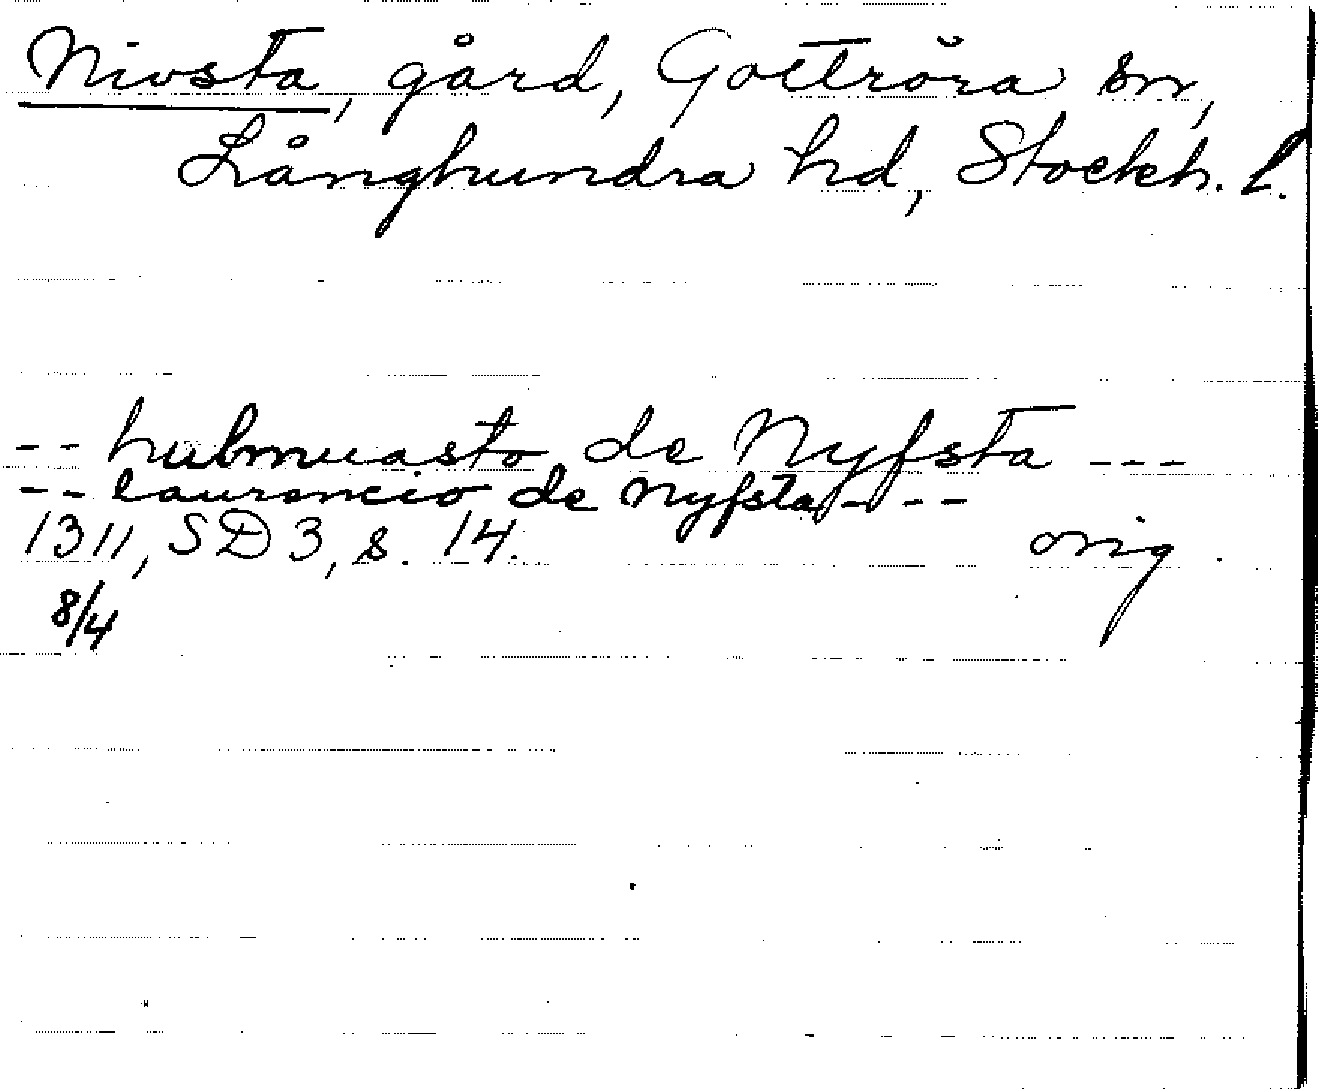 Nivsta, gård, Gottröra sn,
Långhundra hd, Stockh. l.
-- hulmuasto de Nyfsta ---
-- laurencio de Nyfsta - --
1311, SD 3, s. 14. orig.
8/4